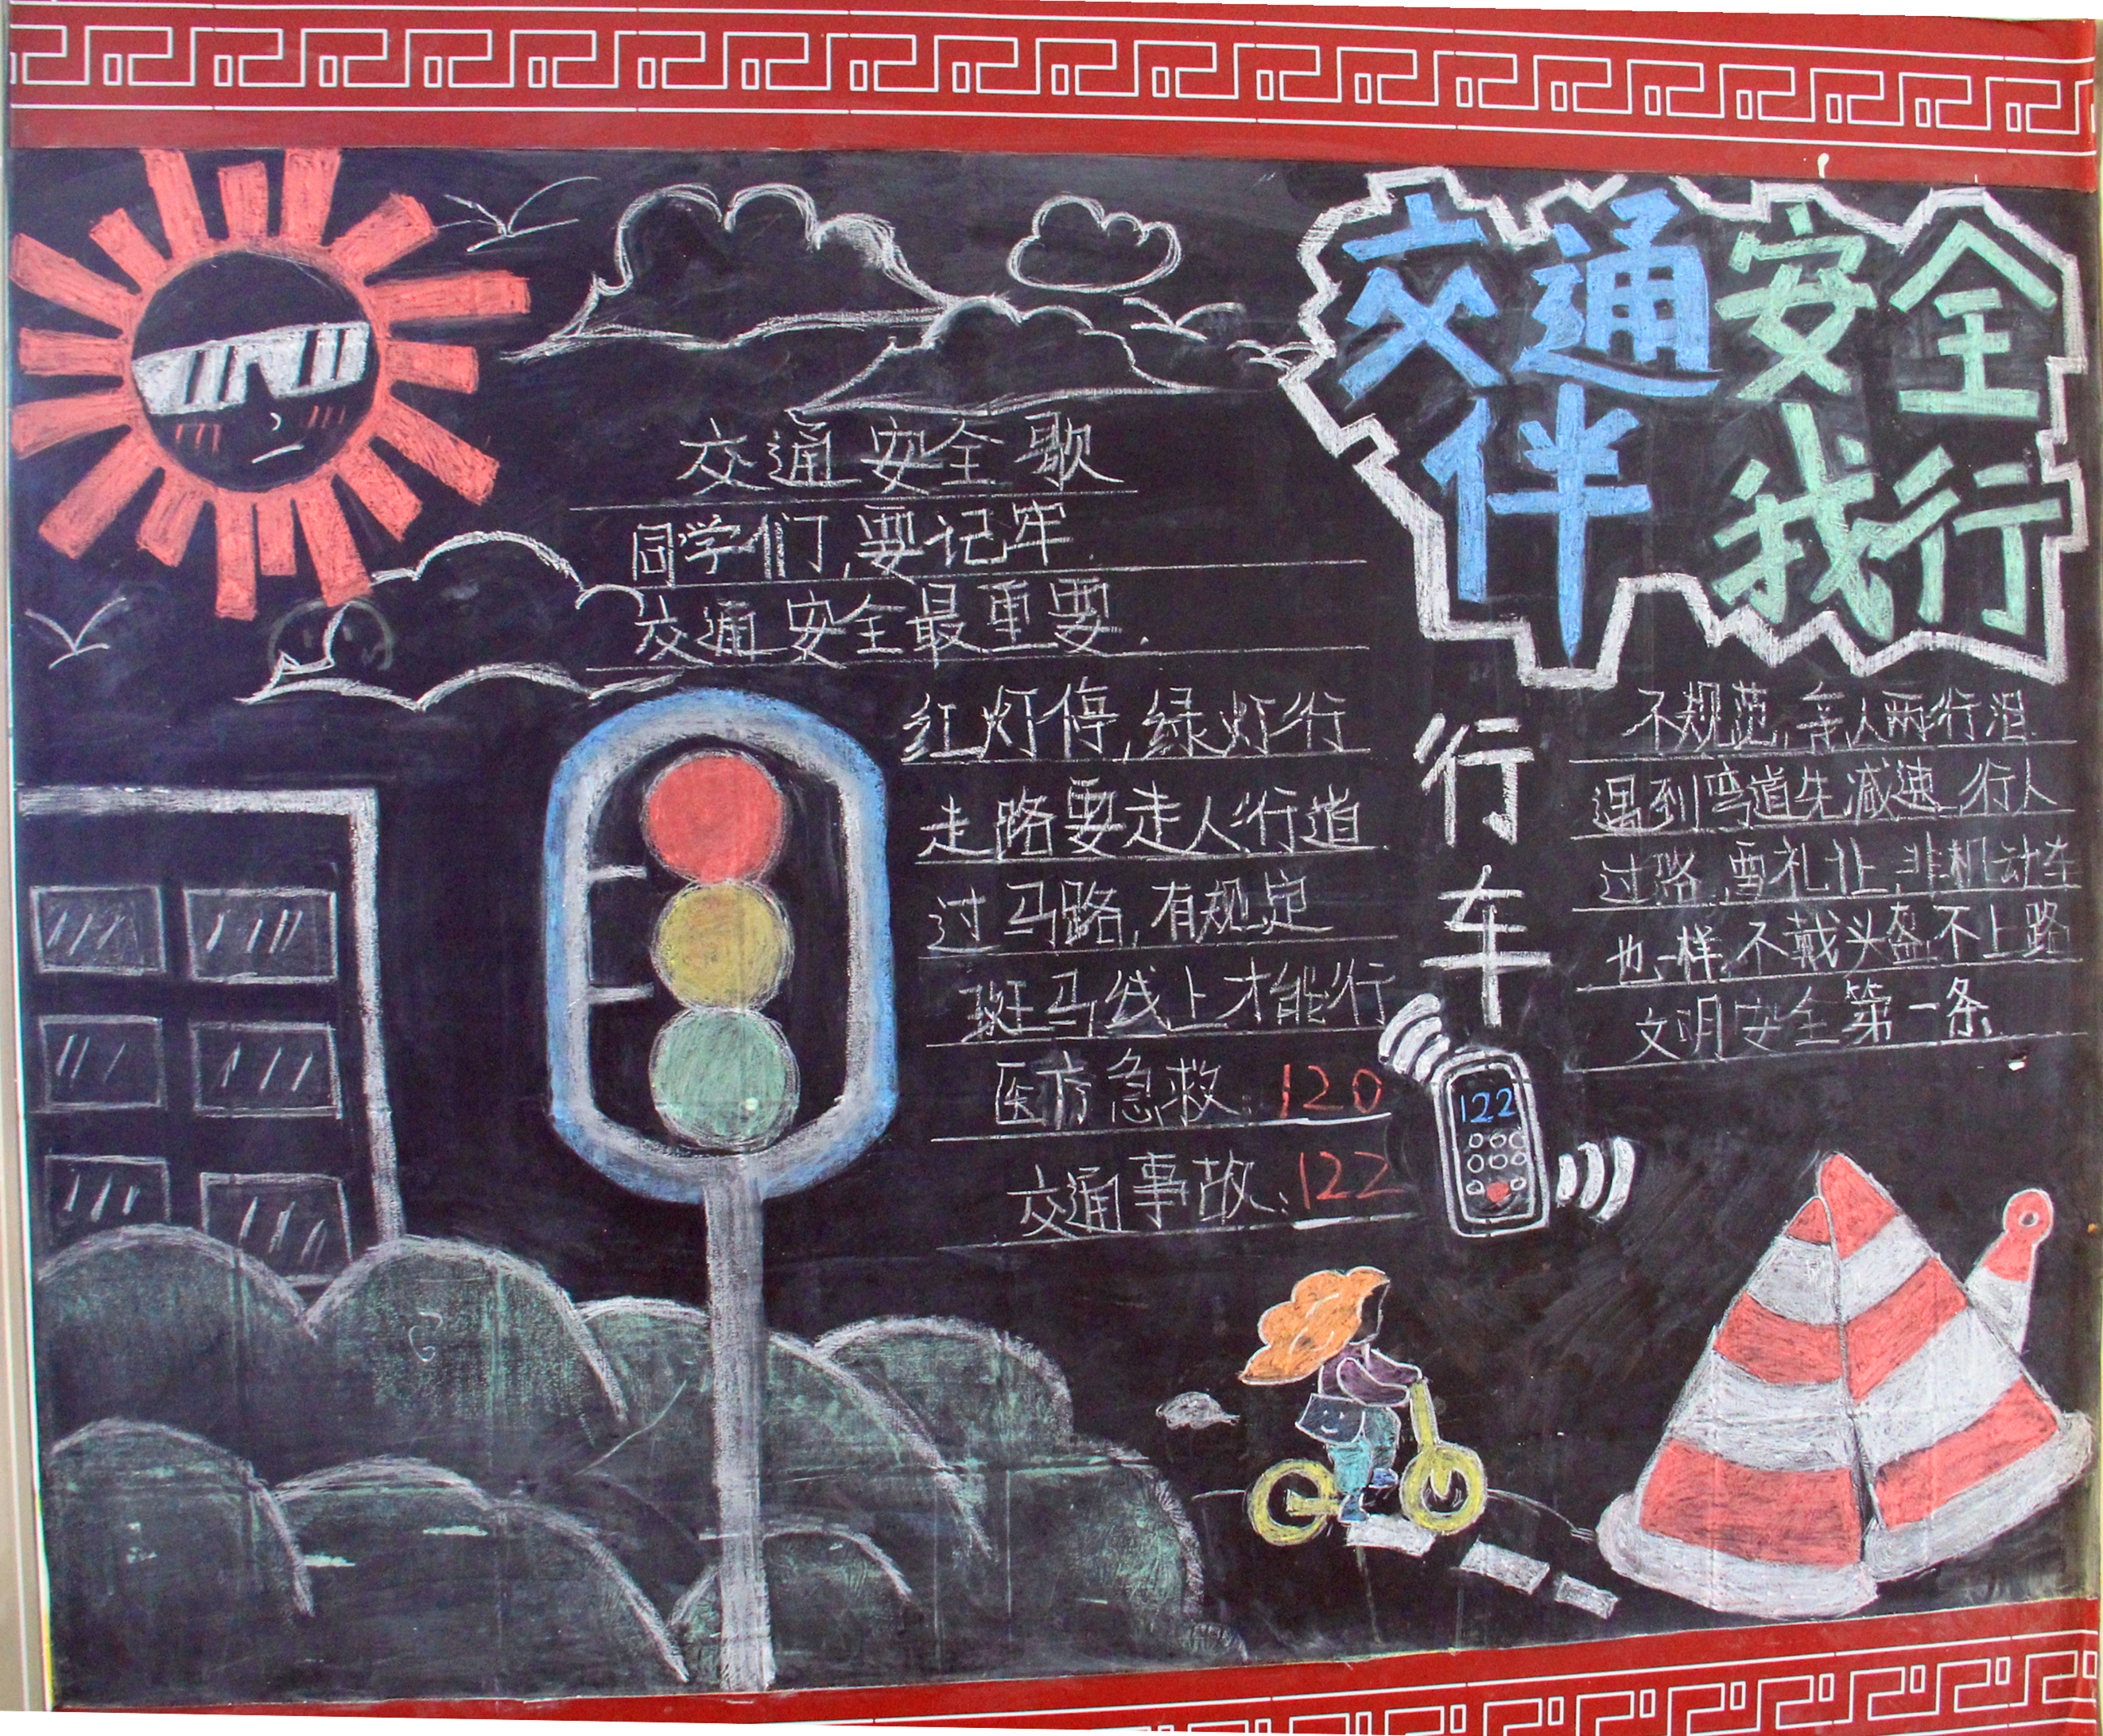 交通安全
伴我行
交通安全歌
同学们,要记牢.
交通安全最重要.
红灯停,绿灯行
走路要走人行道
过马路,有规定
斑马线上才能行
医疗急救:120
交通事故:122
行车
不规范,亲人两行泪.
遇到弯道先减速 行人
过路,要礼让,非机动车
也一样,不戴头盔不上路
文明安全第一条.
122